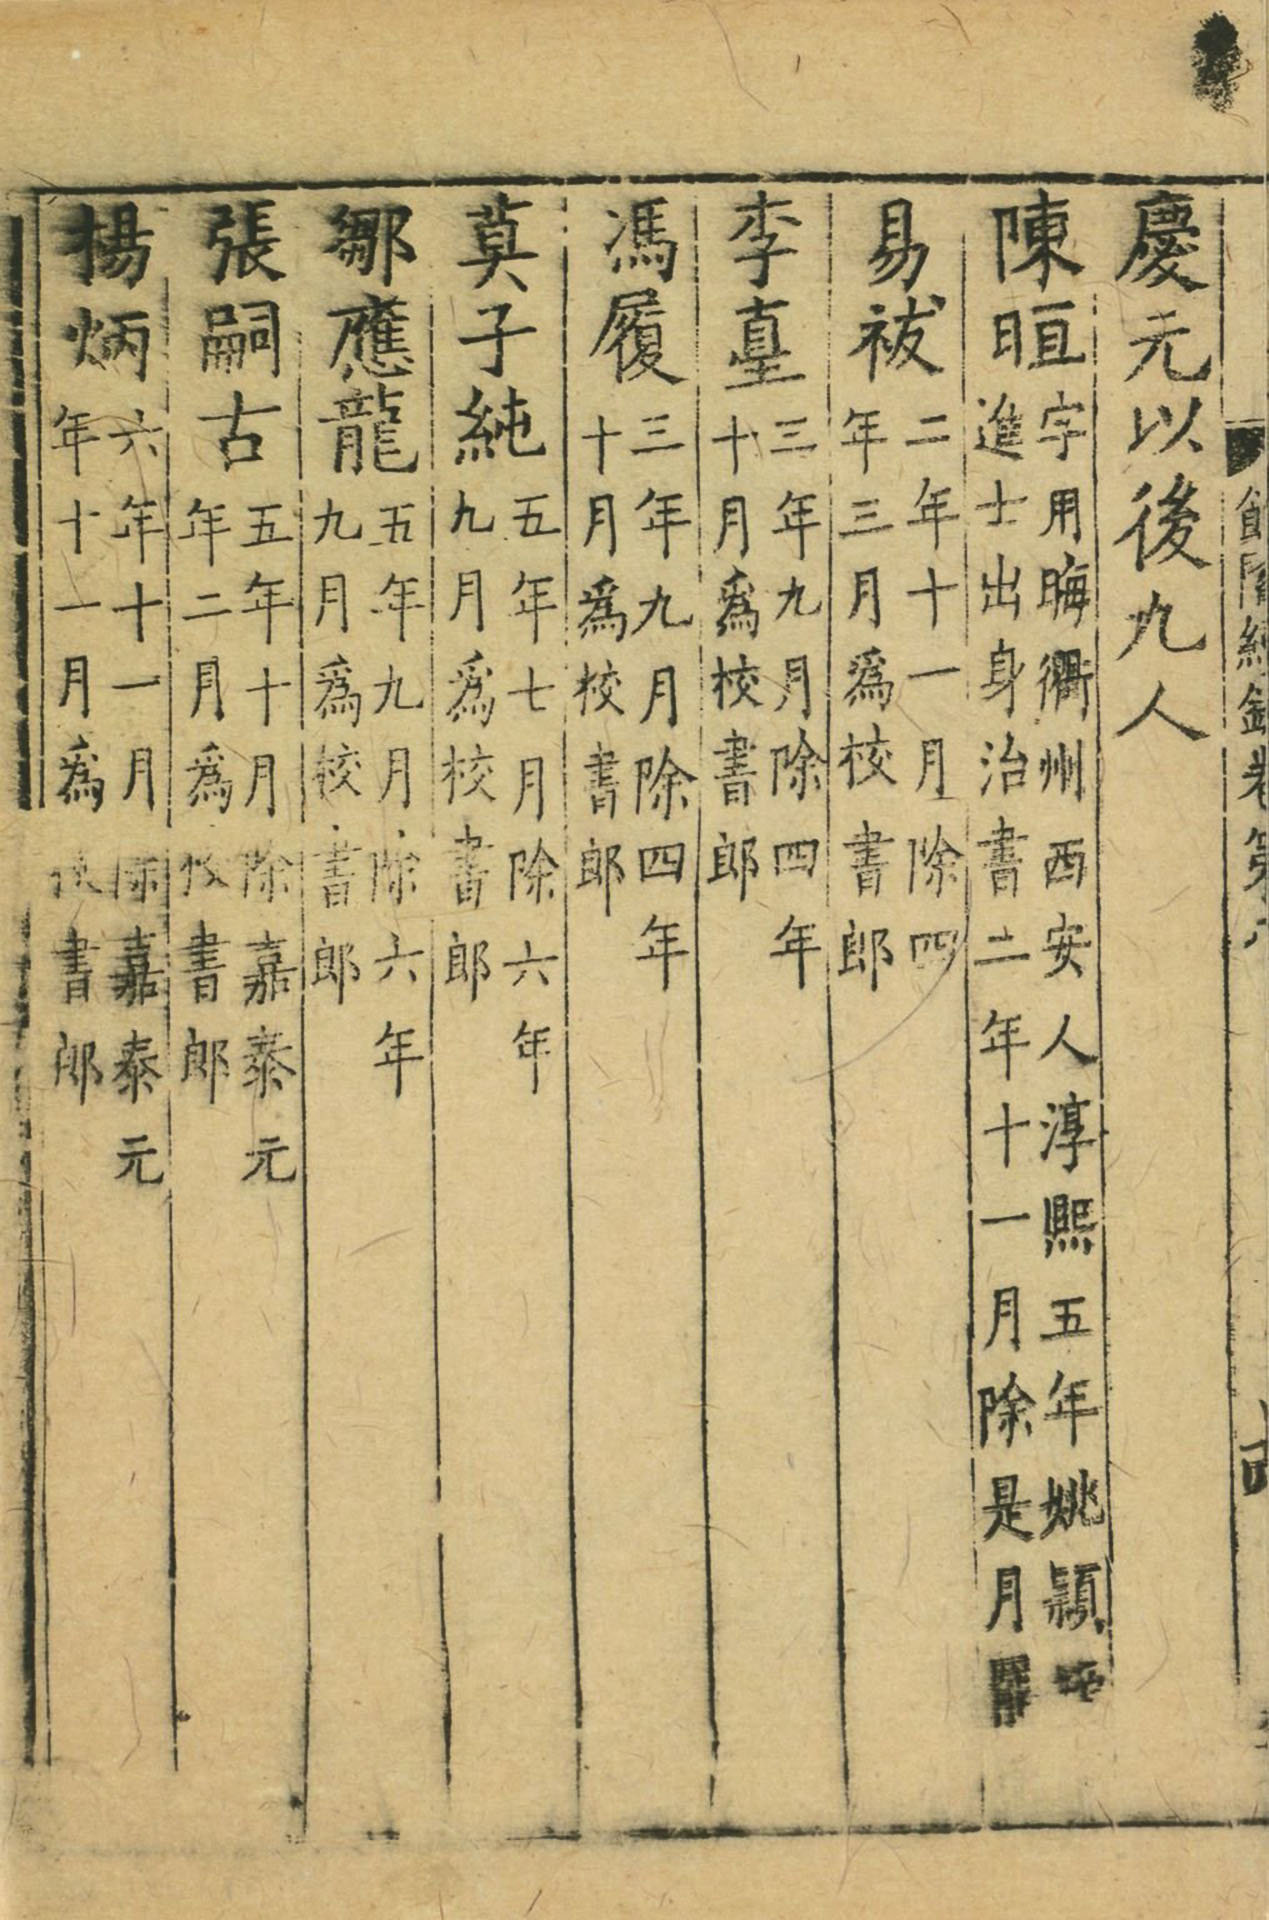 慶元以後九人
陳晅字用晦衢州西安人淳熙五年姚穎
進士出身治書二年十一月除是月罷
易祓二年十一月除四
年三月爲校書郎
李臺三年九月除四年
十月爲校書郎
馮履三年九月除四年
十月爲校書郎
莫子純五年七月除六年
九月爲校書郎
鄒應龍五年九月除六年
九月爲校書郎
張嗣古五年十月除嘉泰元
年二月爲校書郎
楊炳六年十一月除嘉泰元
年十一月爲校書郎
館閣續錄卷第八